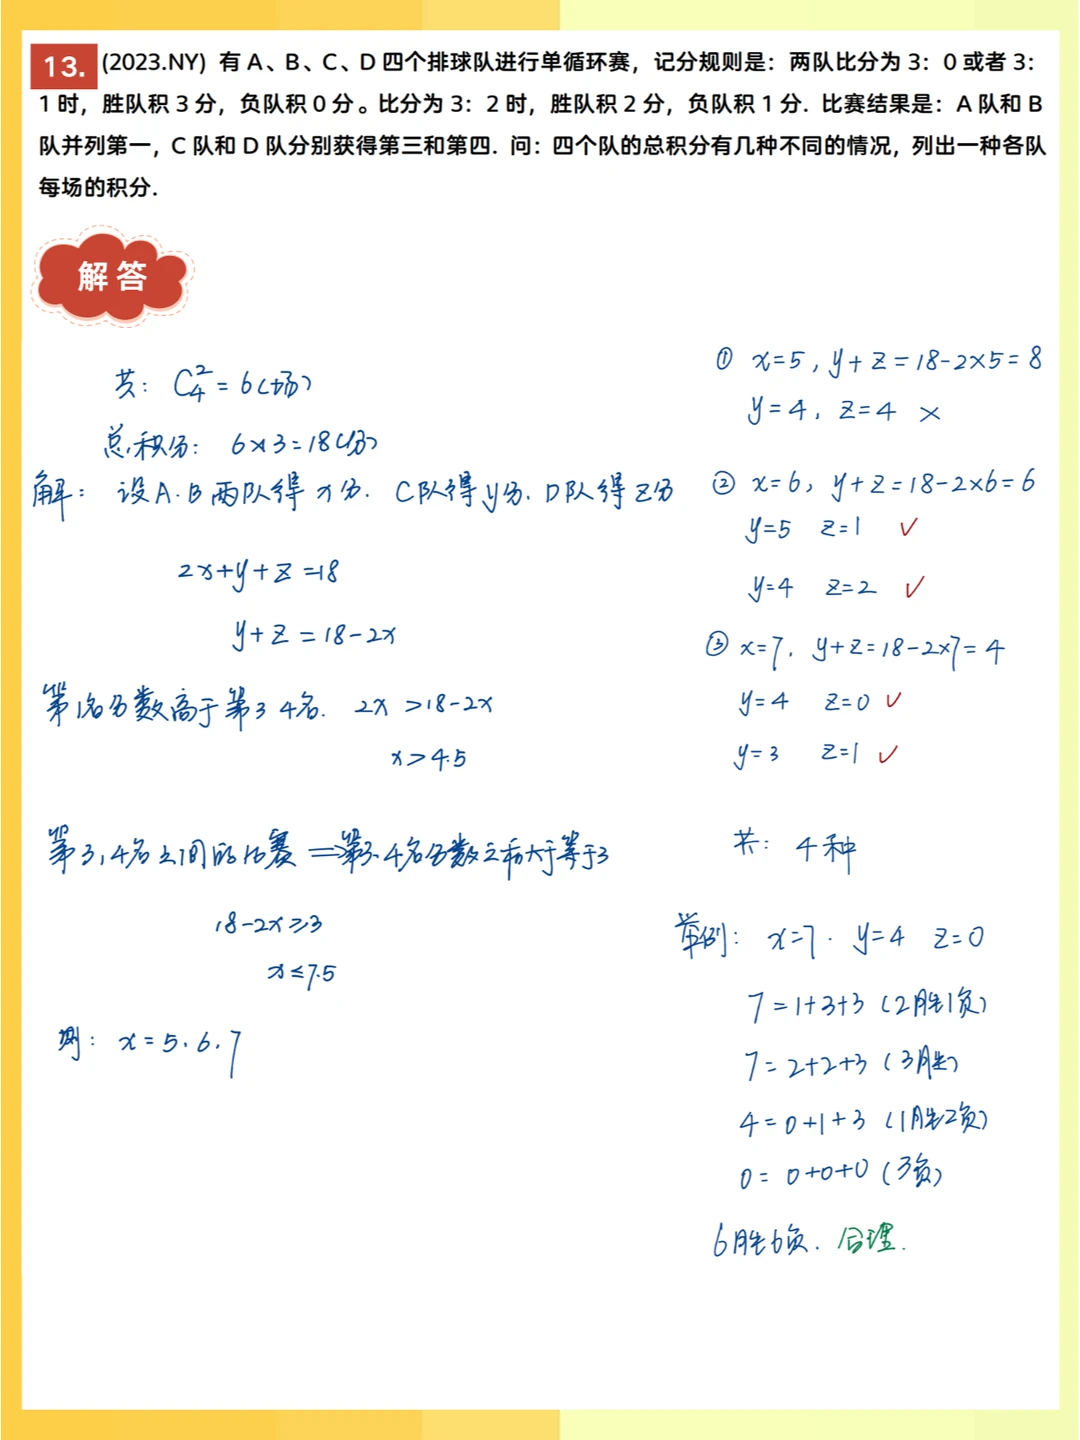 13. (2023.NY) 有 A、B、C、D 四个排球队进行单循环赛，记分规则是：两队比分为 3：0 或者 3：
1 时，胜队积 3 分，负队积 0 分。比分为 3：2 时，胜队积 2 分，负队积 1 分．比赛结果是：A 队和 B
队并列第一，C 队和 D 队分别获得第三和第四．问：四个队的总积分有几种不同的情况，列出一种各队
每场的积分．
解答
共：C₄² = 6（场）
总积分：6×3=18（分）
解：设A.B两队得x分．C队得y分．D队得z分
2x+y+z=18
y+z=18-2x
第1名分数高于第3 4名．2x>18-2x
x>4.5
第3,4名之间的比赛 ⟹第3.4名分数之和大于等于3
18-2x≥3
x≤7.5
则：x=5.6.7
① x=5, y+z=18-2×5=8
y=4, z=4 ×
② x=6, y+z=18-2×6=6
y=5 z=1 ✓
y=4 z=2 ✓
③ x=7, y+z=18-2×7=4
y=4 z=0 ✓
y=3 z=1 ✓
共：4种
举例：x=7. y=4 z=0
7=1+3+3（2胜1负）
7=2+2+3（3胜）
4=0+1+3（1胜2负）
0=0+0+0（3负）
6胜6负．合理．